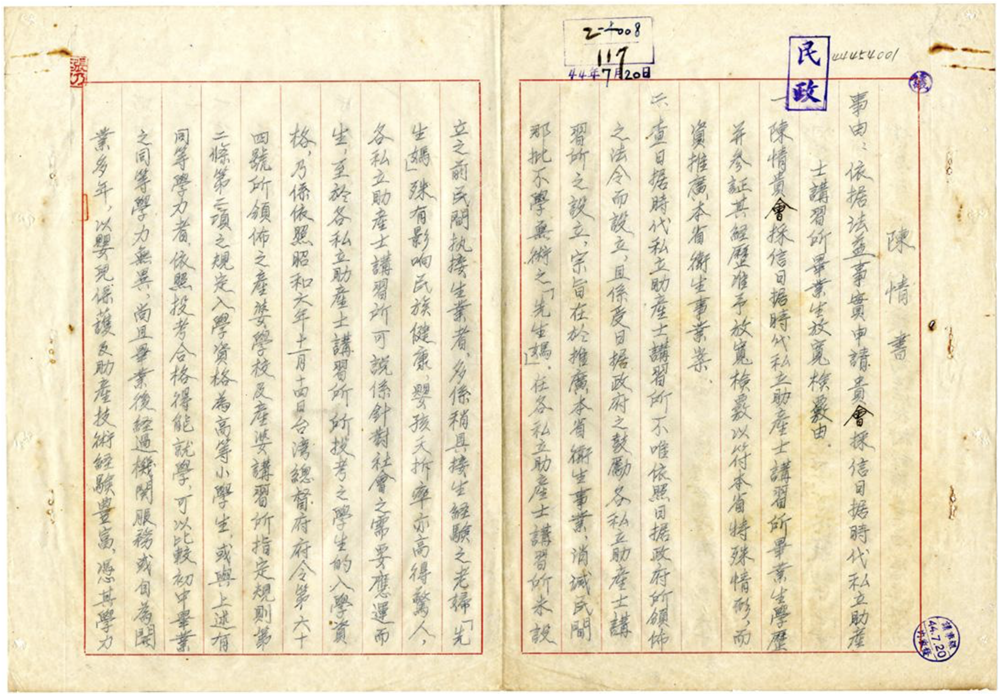 2-2008
117
44年7月20日
民政
44454001
陳情書
事由：依据法益事實申請貴會採信日据時代私立助產
士講習所畢業生放寬檢覈由．
一、陳情貴會採信日据時代私立助產士講習所畢業生學歷
并参証其經歷准予放寬檢覈以符本省特殊情形，而
資推廣本省衛生事業案．
二、查日据時代私立助產士講習所不唯依照日据政府所頒佈
之法令而設立，且係受日据政府之鼓勵各私立助產士講
習所之設立，宗旨在於推廣本省衛生事業，消滅民間
那批不學無術之「先生媽」，在各私立助產士講習所未設
立之前民間執接生業者，多係稍具接生經驗之老婦「先
生媽」殊有影响民族健康，嬰孩夭折率亦高得驚人，
各私立助產士講習所可說係針對社會之需要應運而
生，至於各私立助產士講習所所投考之學生的入學資
格，乃係依照昭和六年十一月十四日台湾總督府府令第六十
四號所頒佈之產婆學校及產婆講習所指定規則第
二條第二項之規定入學資格為高等小學生，或與上述有
同等學力者依照投考合格得能就學，可以比較初中畢業
之同等學力無異，尚且畢業後經過機関服務或自為開
業多年，以嬰兒保護及助產技術經験豊富，憑其學力
44.7.20